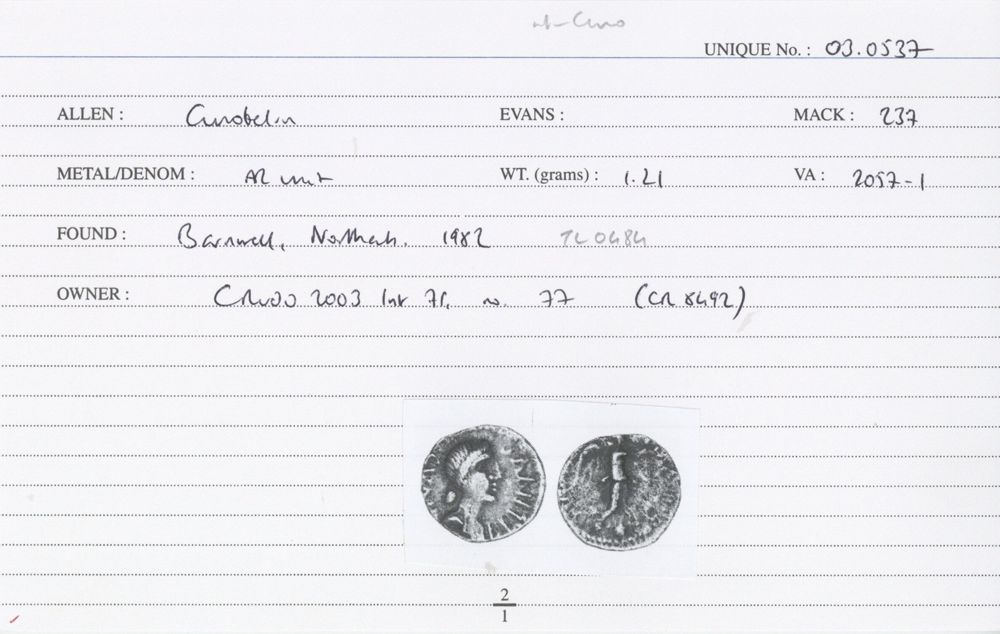 UNIQUE No. : 03.0537
ALLEN : Cunobelin EVANS : MACK : 237
METAL/DENOM : AR unit WT. (grams) : 1.21 VA : 2057-1
FOUND : Barnwell, Northants. 1982 TL0484
OWNER : 2003 no. 77 (CR 8492)
2
1